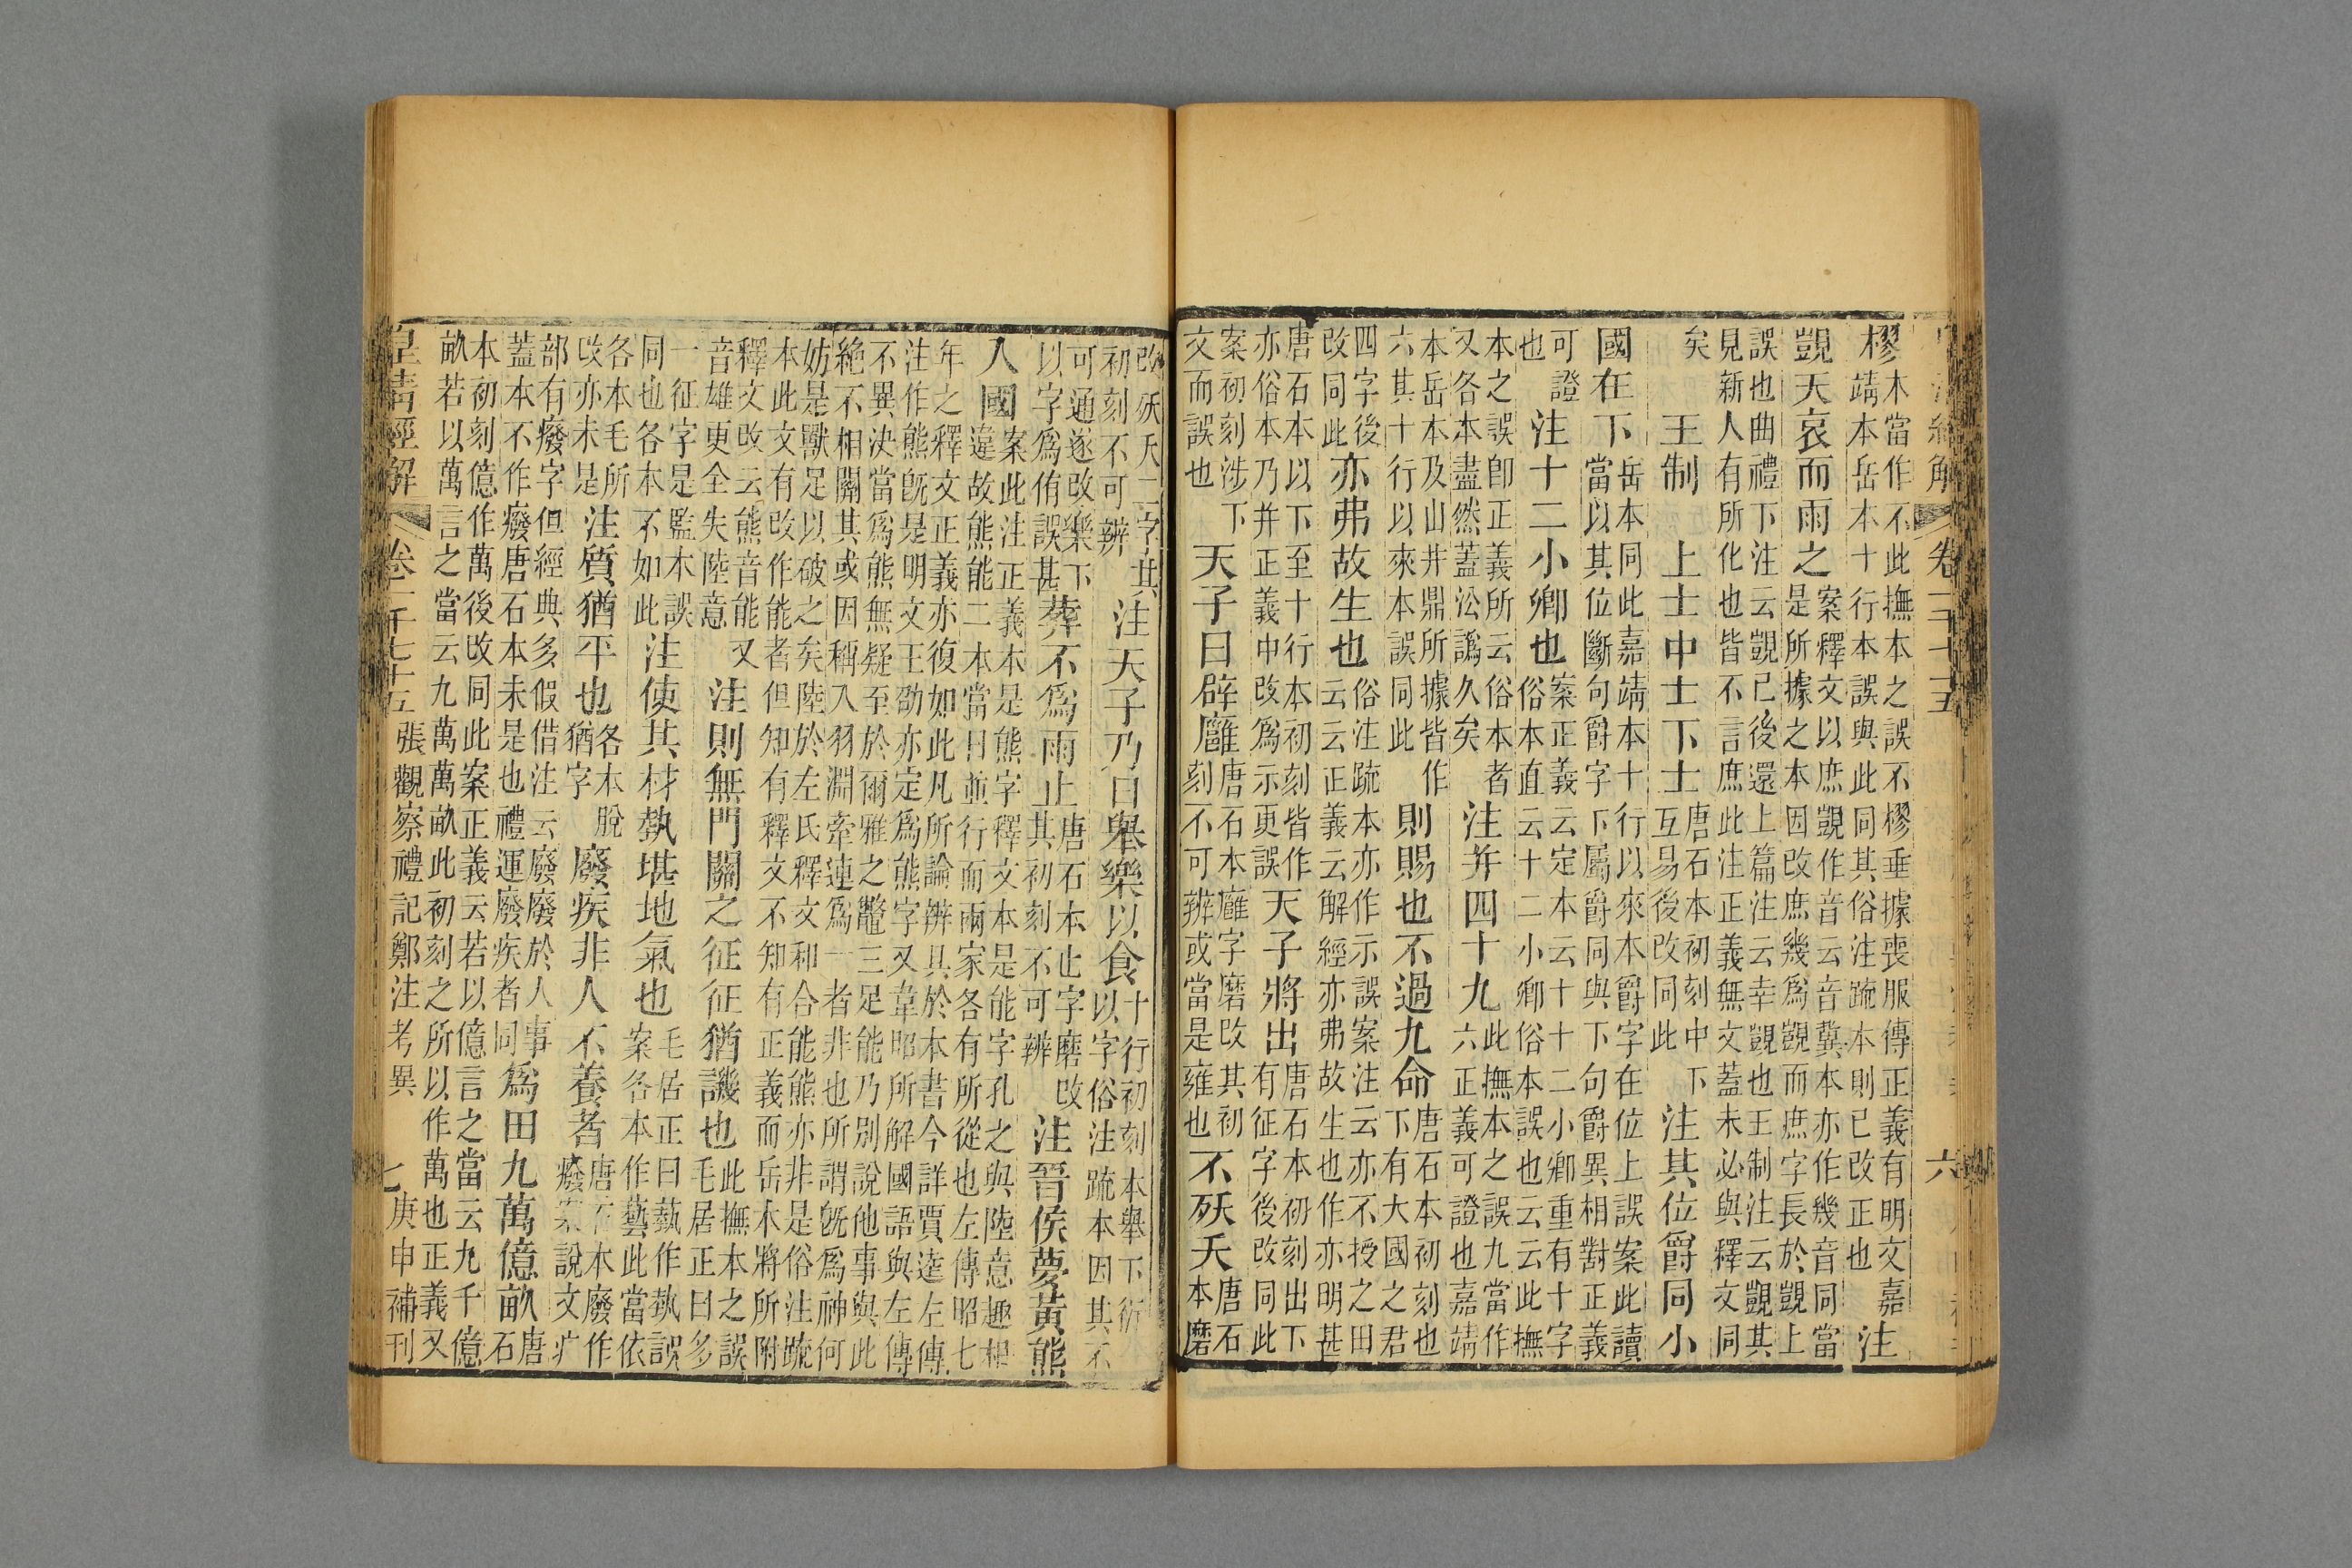 樛木當作不此撫本之誤不樛垂據喪服傳正義有明文嘉
靖本岳本十行本誤與此同其俗注疏本則已改正也注
覬天哀而雨之案釋文以庶覬作音云音冀本亦作幾音同當
是所據之本因改庶幾爲覬而庶字長於覬上
誤也曲禮下注云覬己後還上篇注云幸覬也王制注云覬其
見新人有所化也皆不言庶此注正義無文蓋未必與釋文同
矣 王制 上士中士下士唐石本初刻中下
互易後改同此 注其位爵同小
國在下岳本同此嘉靖本十行以來本爵字在位上誤案此讀
當以其位斷句爵字下屬爵同與下句爵異相對正義
可證
也 注十二小卿也案正義云定本云十十二小卿重有十字
俗本直云十二小卿俗本誤也云云此撫
本之誤卽正義所云俗本者
又各本盡然蓋沿譌久矣 注并四十九此撫本之誤九當作
六正義可證也嘉靖
本岳本及山井鼎所據皆作
六其十行以來本誤同此 則賜也不過九命唐石本初刻也
下有大國之君
四字後
改同此 亦弗故生也俗注疏本亦作示誤案注云亦不授之田
云云正義云解經亦弗故生也作亦明甚
唐石本以下至十行本初刻皆作
亦俗本乃并正義中改爲示更誤 天子將出唐石本初刻出下
有征字後改同此
案初刻涉下
文而誤也 天子曰辟廱唐石本廱字磨改其初
刻不可辨或當是雍也 不殀夭唐石
本磨
六
改殀夭二字其
初刻不可辨 注天子乃曰舉樂以食十行初刻本舉下衍
以字俗注疏本因其不
可通遂改樂下
以字爲侑誤甚 葬不爲雨止唐石本止字磨改
其初刻不可辨 注晉侯夢黃熊
入國案此注正義本是熊字釋文本是能字孔之與陸意趣相
違故熊能二本當日並行而兩家各有所從也左傳昭七
年之釋文正義亦復如此凡所論辨具於本書今詳賈逵左傳
注作熊旣是明文王劭亦定爲熊字又韋昭所解國語與左傳
不異決當爲熊無疑至於爾雅之鼈三足能乃別說他事與此
絕不相關其或因稱入羽淵牽連爲一者非也所謂旣爲神何
妨是獸足以破之矣陸於左氏釋文和合能熊亦非是俗注疏
本此文有改作能者但知有釋文不知有正義而岳本將所附
釋文改云熊音能又
音雄更全失陸意 注則無門關之征征猶譏也此撫本之誤
毛居正曰多
一征字是監本誤
同也各本不如此 注使其材埶堪地氣也毛居正曰埶作埶誤
案各本作藝此當依
各本毛所
改亦未是 注質猶平也各本脫
猶字 廢疾非人不養者唐石本廢作
癈案說文疒
部有癈字但經典多假借注云廢廢於人事
蓋本不作癈唐石本未是也禮運廢疾者同 爲田九萬億畝唐
石
本初刻億作萬後改同此案正義云若以億言之當云九千億
畝若以萬言之當云九萬萬畝此初刻之所以作萬也正義又
皇清經解 卷一千七十五 張觀察禮記鄭注考異 七 庚申補刊